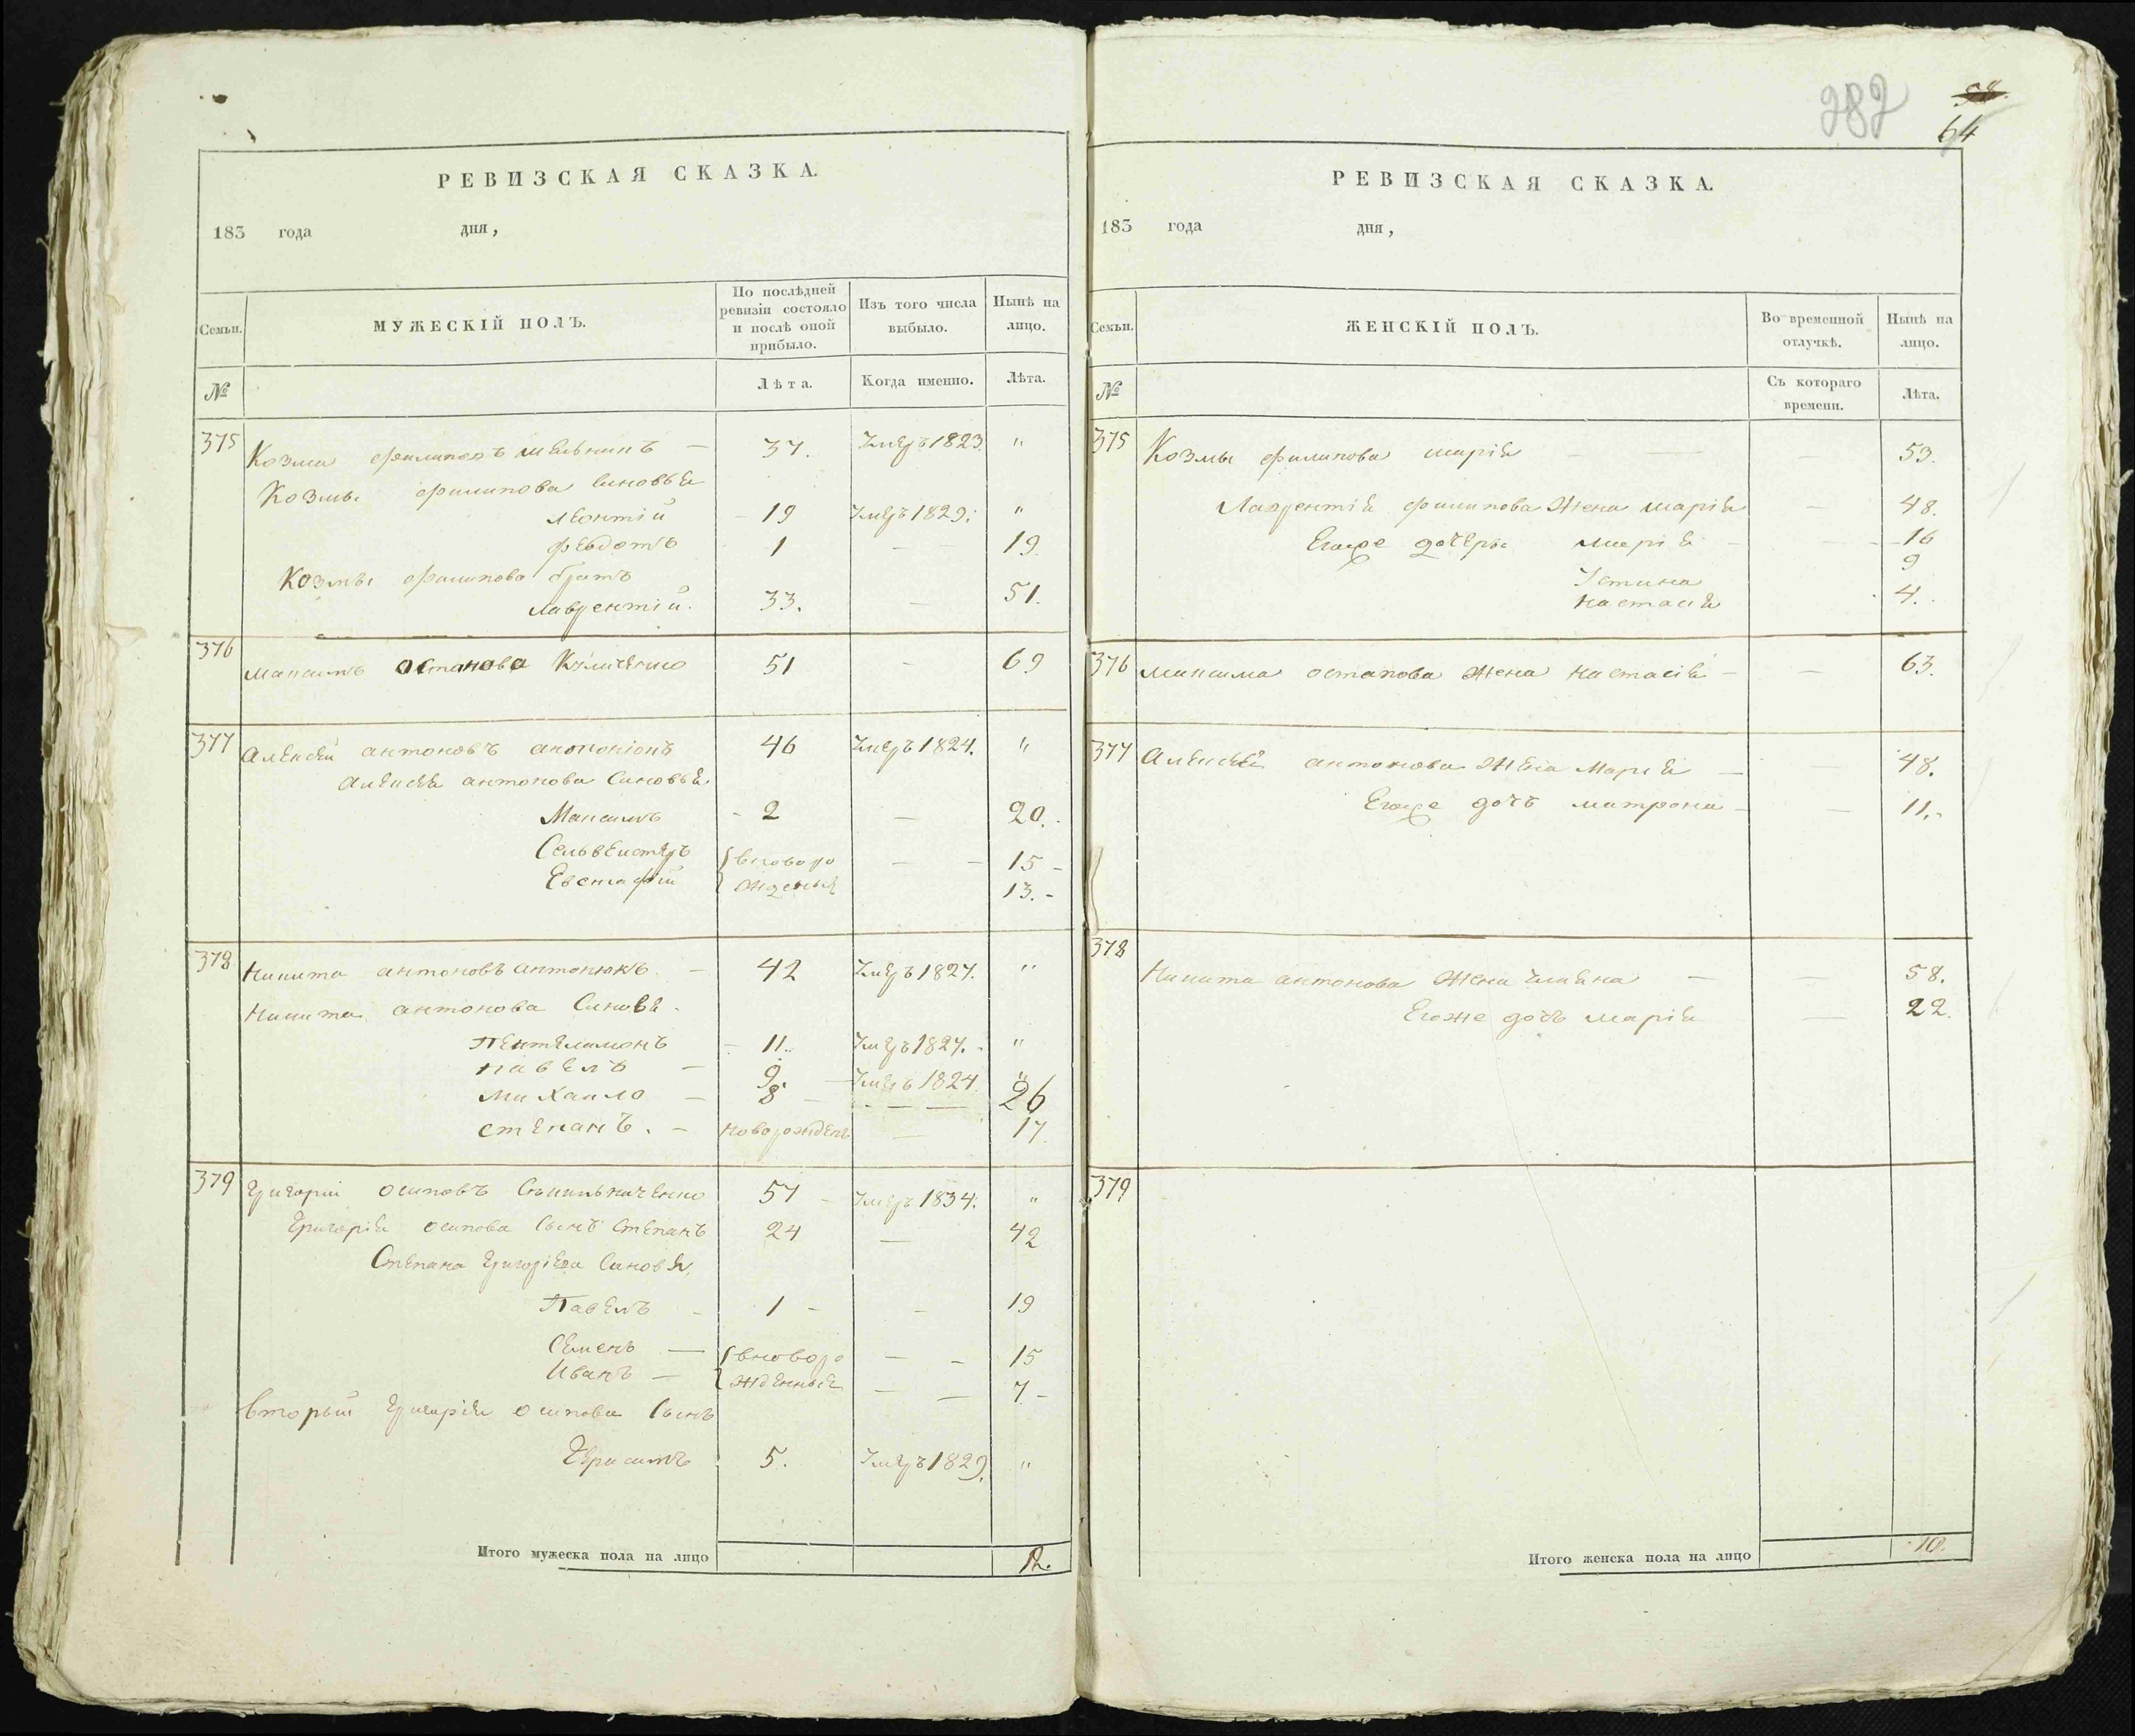 282
58.
64
РЕВИЗСКАЯ СКАЗКА.
183 года дня,
Семьи. МУЖЕСКІЙ ПОЛЪ. По послѣдней ревизіи состояло и послѣ оной прибыло. Изъ того числа выбыло. Нынѣ на лицо.
№ Лѣта. Когда именно. Лѣта.
375 Козма филиповъ — 37. Умеръ 1823 "
Козмы филипова синовья
леонтій - 19 Умеръ 1829. "
федотъ 1 — 19.
Козмы филипова братъ
лаврентій. 33. — 51.
376 максимъ остапова 51 - 69
377 алексей антоновъ 46 Умеръ 1824. "
алексея антонова синовья
Максимъ - 2 — 20.
Селвестеръ вноворо — - 15 -
Евстафій жденыя 13. -
378 никита антоновъ антонюкъ. — 42 Умеръ 1827. "
никита антонова синовя.
пентелимонъ - 11. Умеръ 1827. - "
павелъ — 9. Умеръ 1824 "
михаило — 8 — 26
степанъ. - новорожденъ — 17.
379 григорій осиповъ 57 - Умеръ 1834. "
григорія осипова сынъ степанъ 24 — 42
Степана григоріева синовя
Павелъ - 1 - - 19
Семенъ — вноворо — - 15
Иванъ — жденныя — — 7 -
вторый григорія осипова сынъ
Герасимъ 5. Умеръ 1829. "
Итого мужеска пола на лицо 12.
РЕВИЗСКАЯ СКАЗКА.
183 года дня,
Семьи. ЖЕНСКІЙ ПОЛЪ. Во временной отлучкѣ. Нынѣ на лицо.
№ Съ котораго времени. Лѣта.
375 Козмы филипова марія — — 53.
Лаврентія филипова жена марія — 48.
Егоже дочеры марія - — 16
Устина 9
настасія 4.
376 максима остапова жена настасія - — 63.
377 алексея антонова жена Марія — — 48.
Егоже дочъ матрона - — 11.-
378
никита антонова жена — — 58.
Егоже дочъ марія — 22.
379
Итого женска пола на лицо 10.